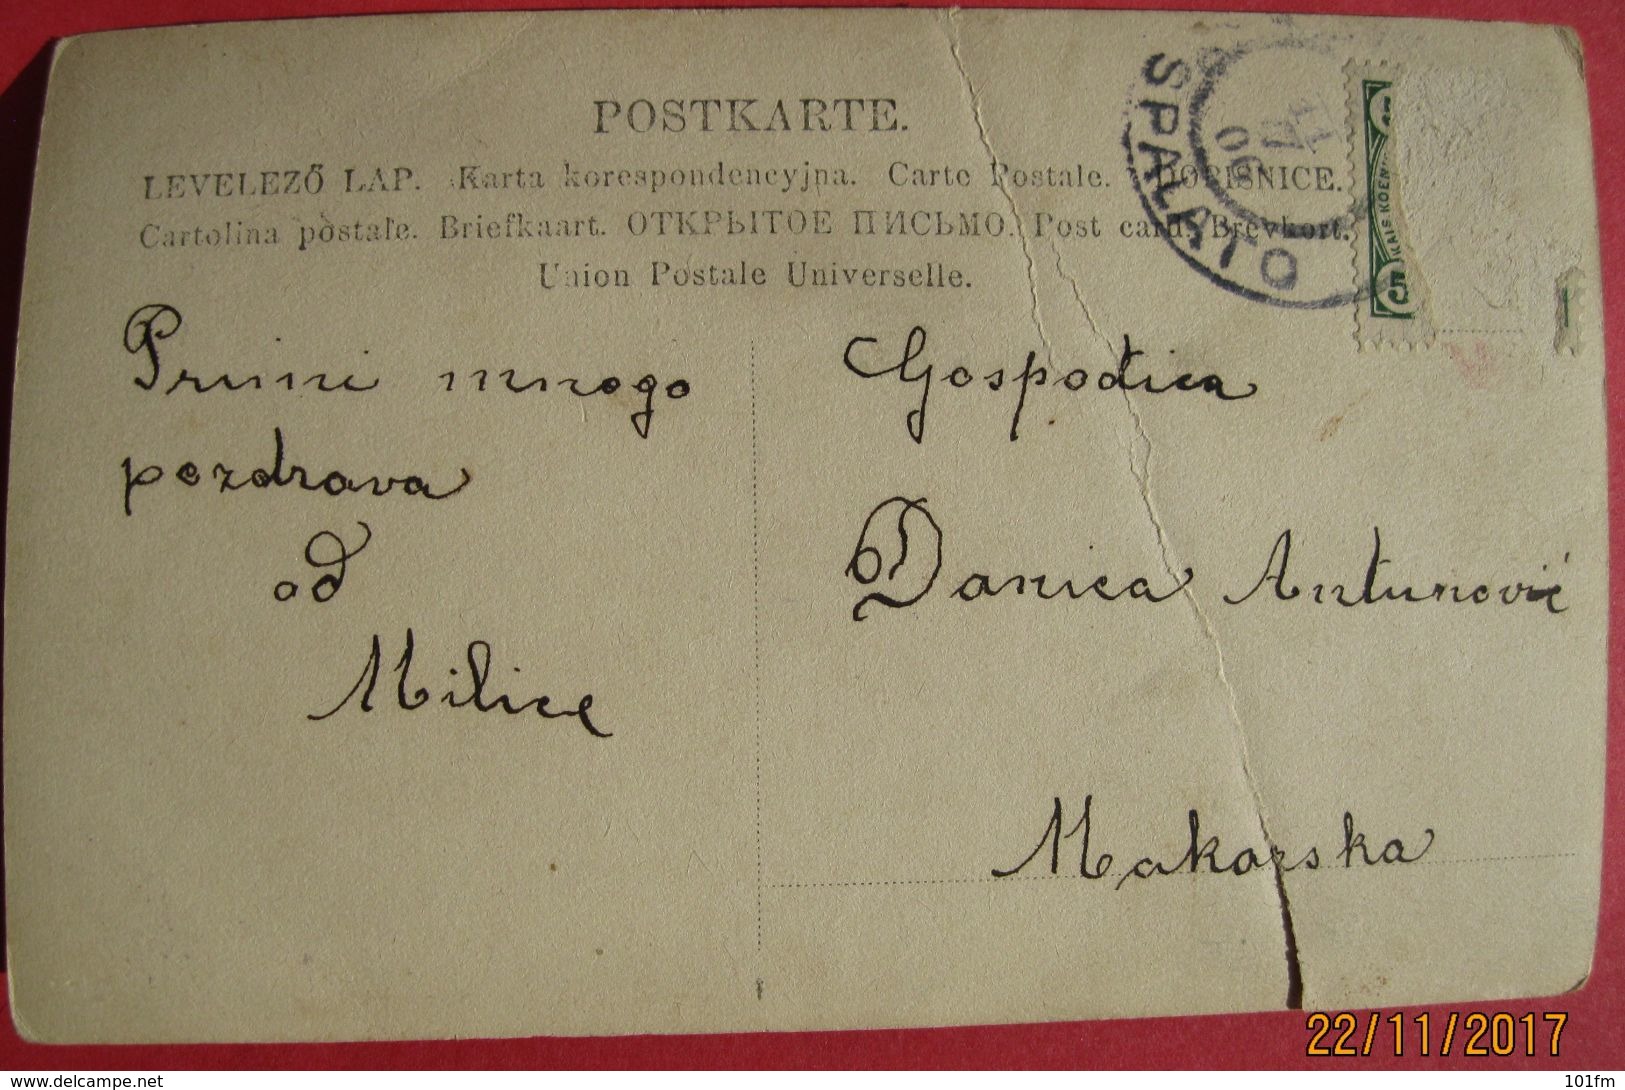 POSTKARTE.
LEVELEZŐ LAP. Karta korespondencyjna. Carte Postale. DOPISNICE.
Cartolina postale. Briefkaart. ОТКРЫТОЕ ПИСЬМО. Post card. Brevkort.
Union Postale Universelle.
SPALATO
06
5
KAIS KOEN
Primi mnogo
pozdrava
od
Milice
Gospodica
Danica Antunović
Makarska
22/11/2017
101fm